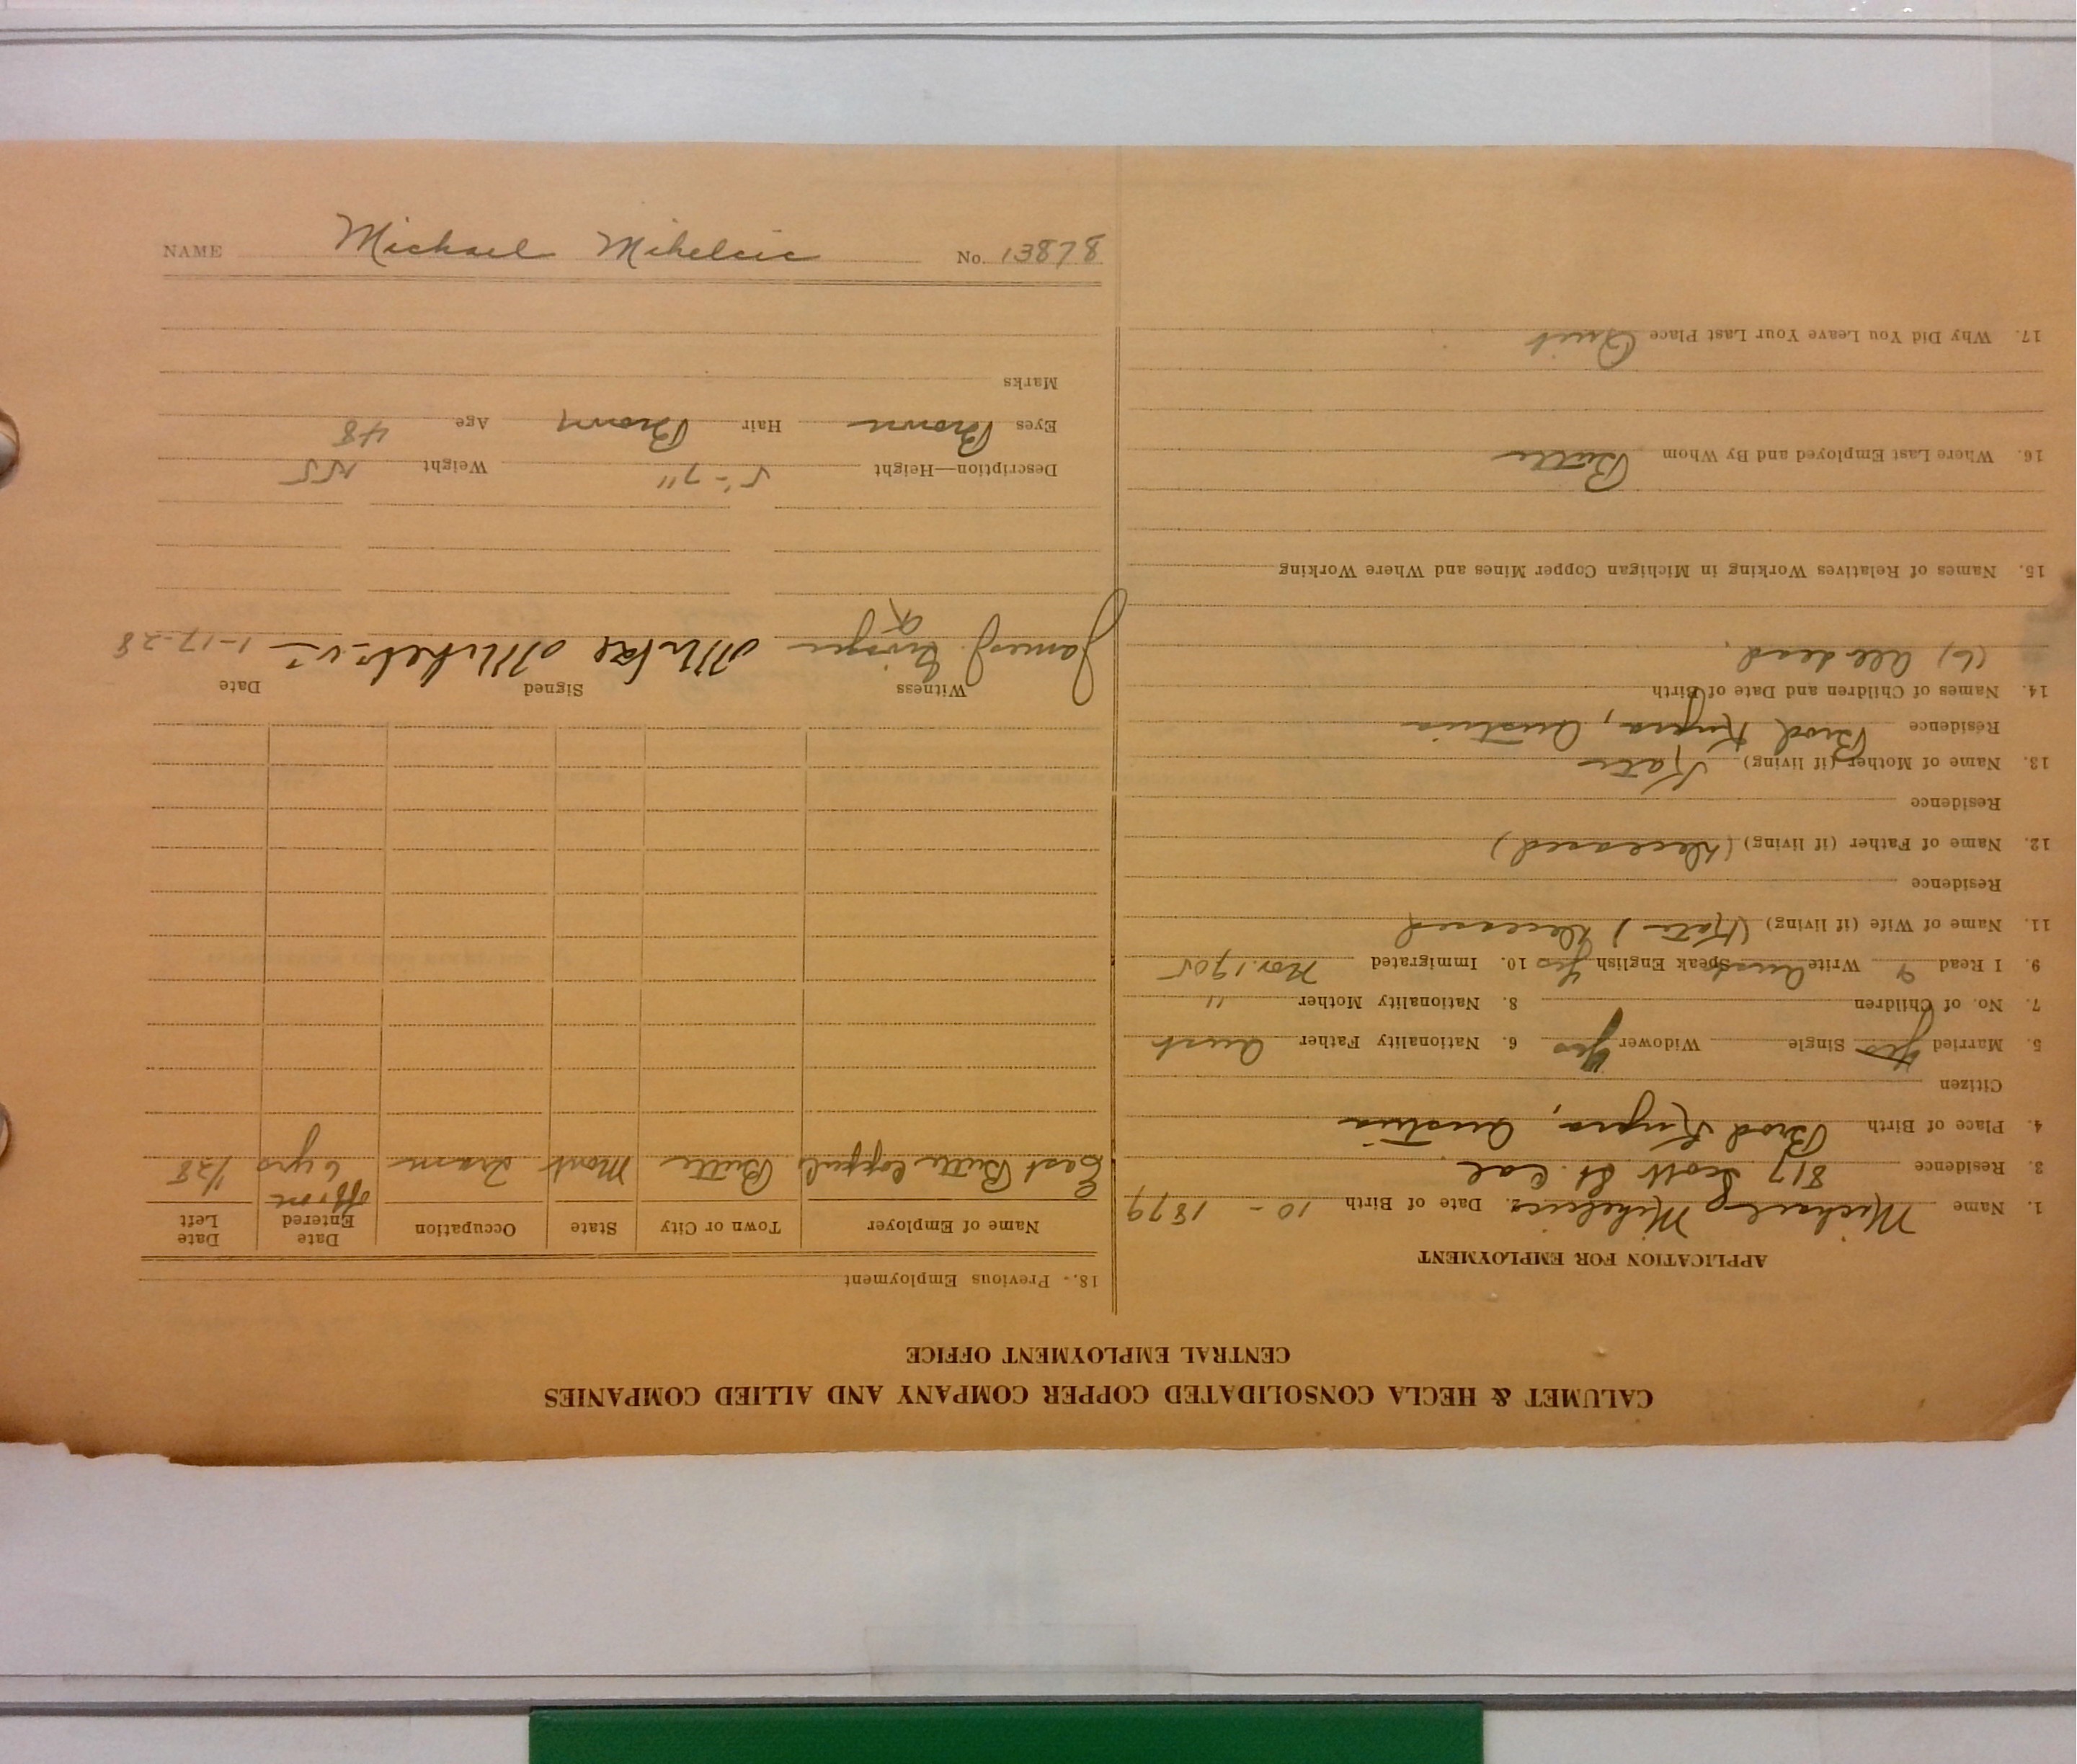 NAME Michael Mihelcic No. 13878
CALUMET & HECLA CONSOLIDATED COPPER COMPANY AND ALLIED COMPANIES
CENTRAL EMPLOYMENT OFFICE
APPLICATION FOR EMPLOYMENT
1. Name Michael Mihelcic 2. Date of Birth 10 - 1879
3. Residence 817 Scott St. Cal
4. Place of Birth Brod Kupa, Austria
Citizen
5. Married Yes Single Widower Yes 6. Nationality Father Aust
7. No. of Children 8. Nationality Mother "
9. I Read & Write Aust Speak English Yes 10. Immigrated Nov. 1905
11. Name of Wife (if living) (Kate) Deceased
Residence
12. Name of Father (if living) (Deceased)
Residence
13. Name of Mother (if living) Kate
Residence Brod Kupa, Austria
14. Names of Children and Date of Birth
(6) All dead.
15. Names of Relatives Working in Michigan Copper Mines and Where Working
16. Where Last Employed and By Whom Butte
17. Why Did You Leave Your Last Place Quit
18. Previous Employment
Name of Employer Town or City State Occupation Date Entered Date Left
East Butte Copper Butte Mont Tram off & on 6 yrs 1/28
Witness Signed Date
James J. Mike 1-17-28
Description—Height 5'-7" Weight 155
Eyes Brown Hair Brown Age 48
Marks